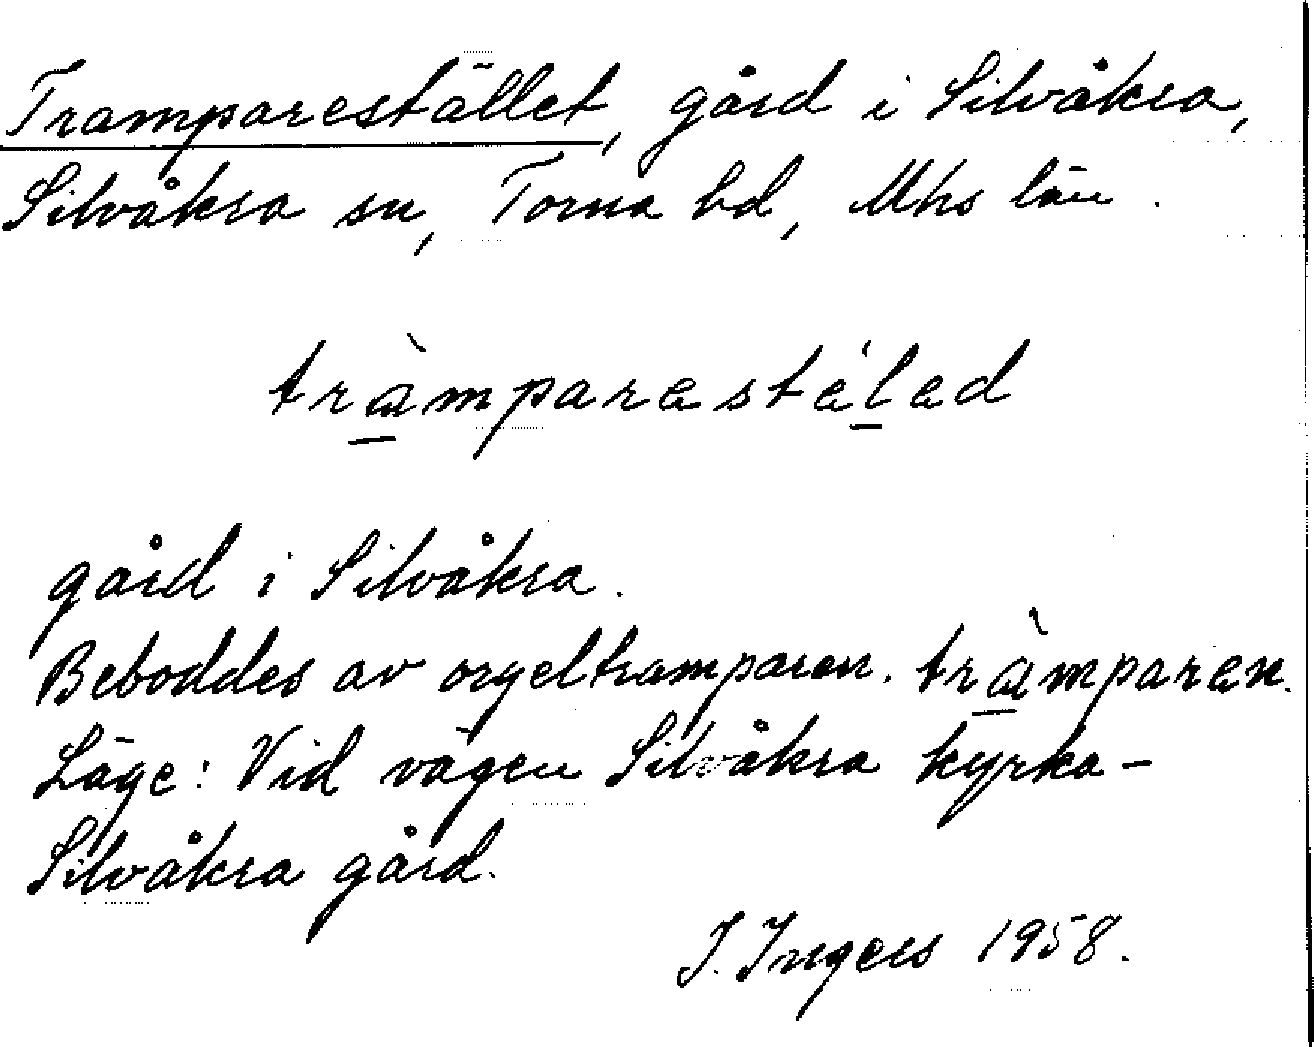 Tramparestället, gård i Silvåkra,
Silvåkra sn, Torna hd, Mhs län.
tràmparestéled
gård i Silvåkra.
Beboddes av orgeltramparen. tràmparen.
Läge: Vid vägen Silvåkra kyrka-
Silvåkra gård.
I. Ingers 1958.